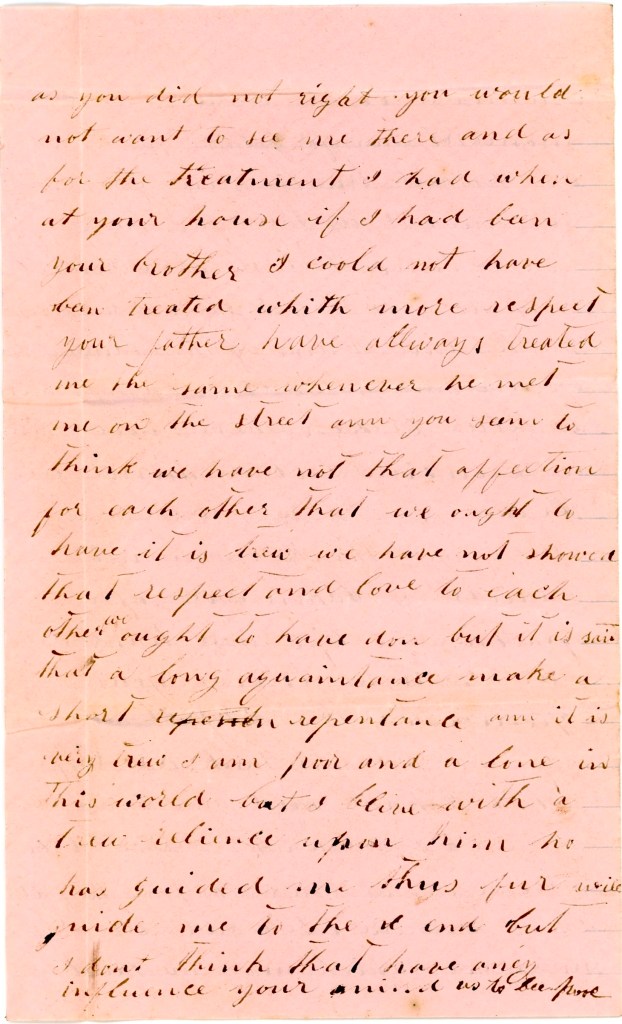 as you did not right you would
not want to see me there and as
for the treatment I had when
at your house if I had ban
your brother I coold not have
ban treated whith more respect
your father have allways treated
me the same whenever he met
me on the street ann you seem to
think we have not that affection
for each other that we ought to
have it is trew we have not showed
that respect and love to each
other we ought to have don but it is said
that a long aquaintance make a
short repentance ann it is
very trew I am poor and a lone in
this world but I blive with a
trew relience upon him ho
has guided me thus fur will
guide me to the end but
I dont think that have aney
influence your mind as to bee